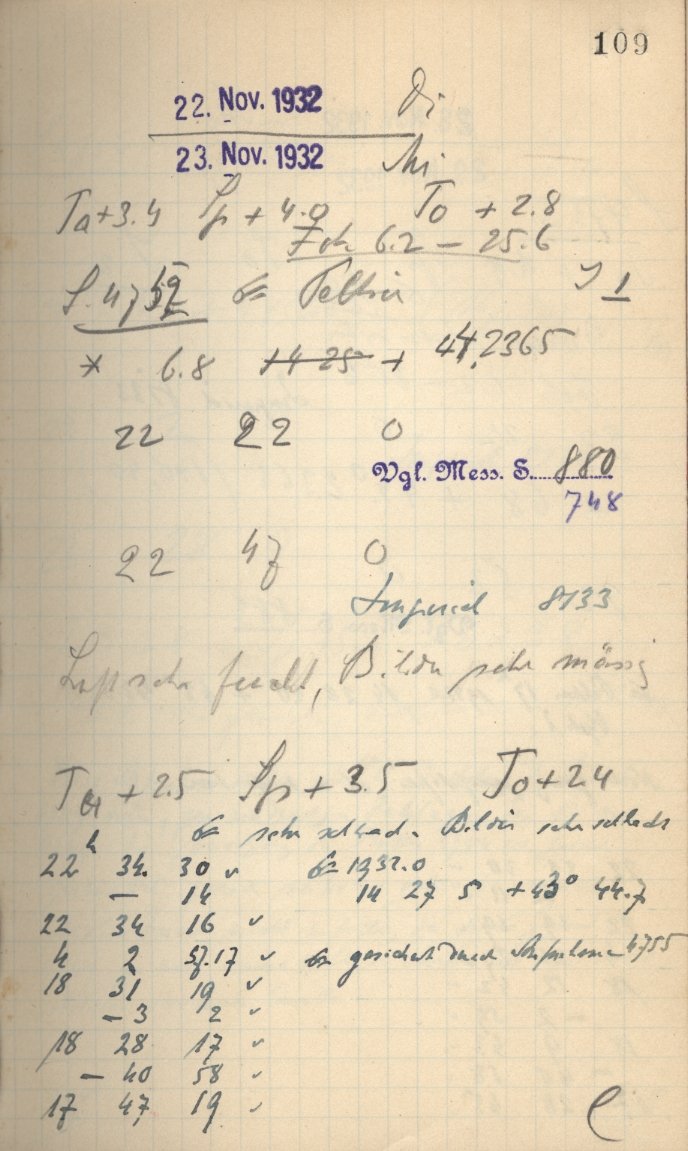 109
22. Nov. 1932 Di
23. Nov. 1932 Mi
Ta + 3.4 Sp + 4.0 To + 2.8
Fok 6.2 – 25.6
S. 4752 1
* 6.8 +4 25 + 44,2365
22 22 0
Vgl. Mess. S. 880
748
22 47 0
Imperial 8133
Luft sehr feucht, Bilder sehr mässig
Ta + 2.5 Sp + 3.5 To + 2.4
sehr schwach. Bilder sehr schlecht
22 h 34. 30 ✓ 1932.0
– 14 14 27 5 + 43° 44.7
22 34 16 ✓
4 2 57.17 ✓ gesichert durch Aufnahme 4755
18 31 19 ✓
– 3 2 ✓
18 28 17 ✓
– 40 58 ✓
17 47 19 ✓